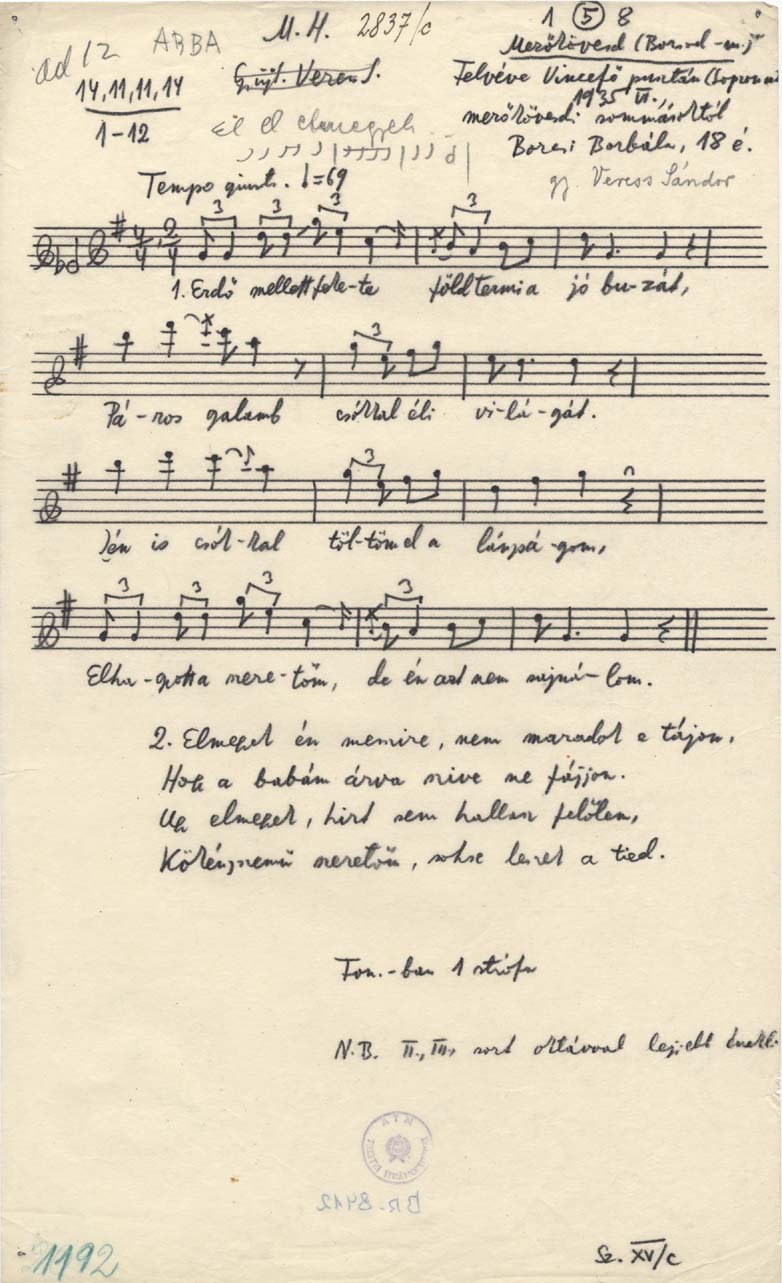 ad 12 ABBA M. H. 2837/c 1 ⑤ 8
14, 11, 11, 14
1-12
Gyűjt. Veress S.
Mezőkövesd (Borsod-m.)
Felvéve Vincefő pusztán (Sopron m.
1935 VI.,
mezőkövesdi sommásoktól
Borcsi Borbála, 18 é.
gy. Veress Sándor
Él el
Tempo giusto. =69
3 3 3 3
1. Erdő mellett fekete földtermi a jó bu-zát,
3
Pá-ros galamb csókkal éli vi-lá-gát.
3
Én is csók-kal töl-töm el a lánpá-gom,
3 3 3 3
Elha-gott a szere-tőm, de én azt nem sajná-lom.
2. Elmegek én messzire, nem maradok e tájon,
Hogy a babám árva szive ne fájjon.
Ugy elmegek, hírt sem hallasz felőlem,
Kökényszemü szeretőm, sohse leszek a tied.
Fon.-ban 1 strófa
N.B. II., III. sort oktávval lejjebb énekli.
BR-8412
1192
Sz. XV/c